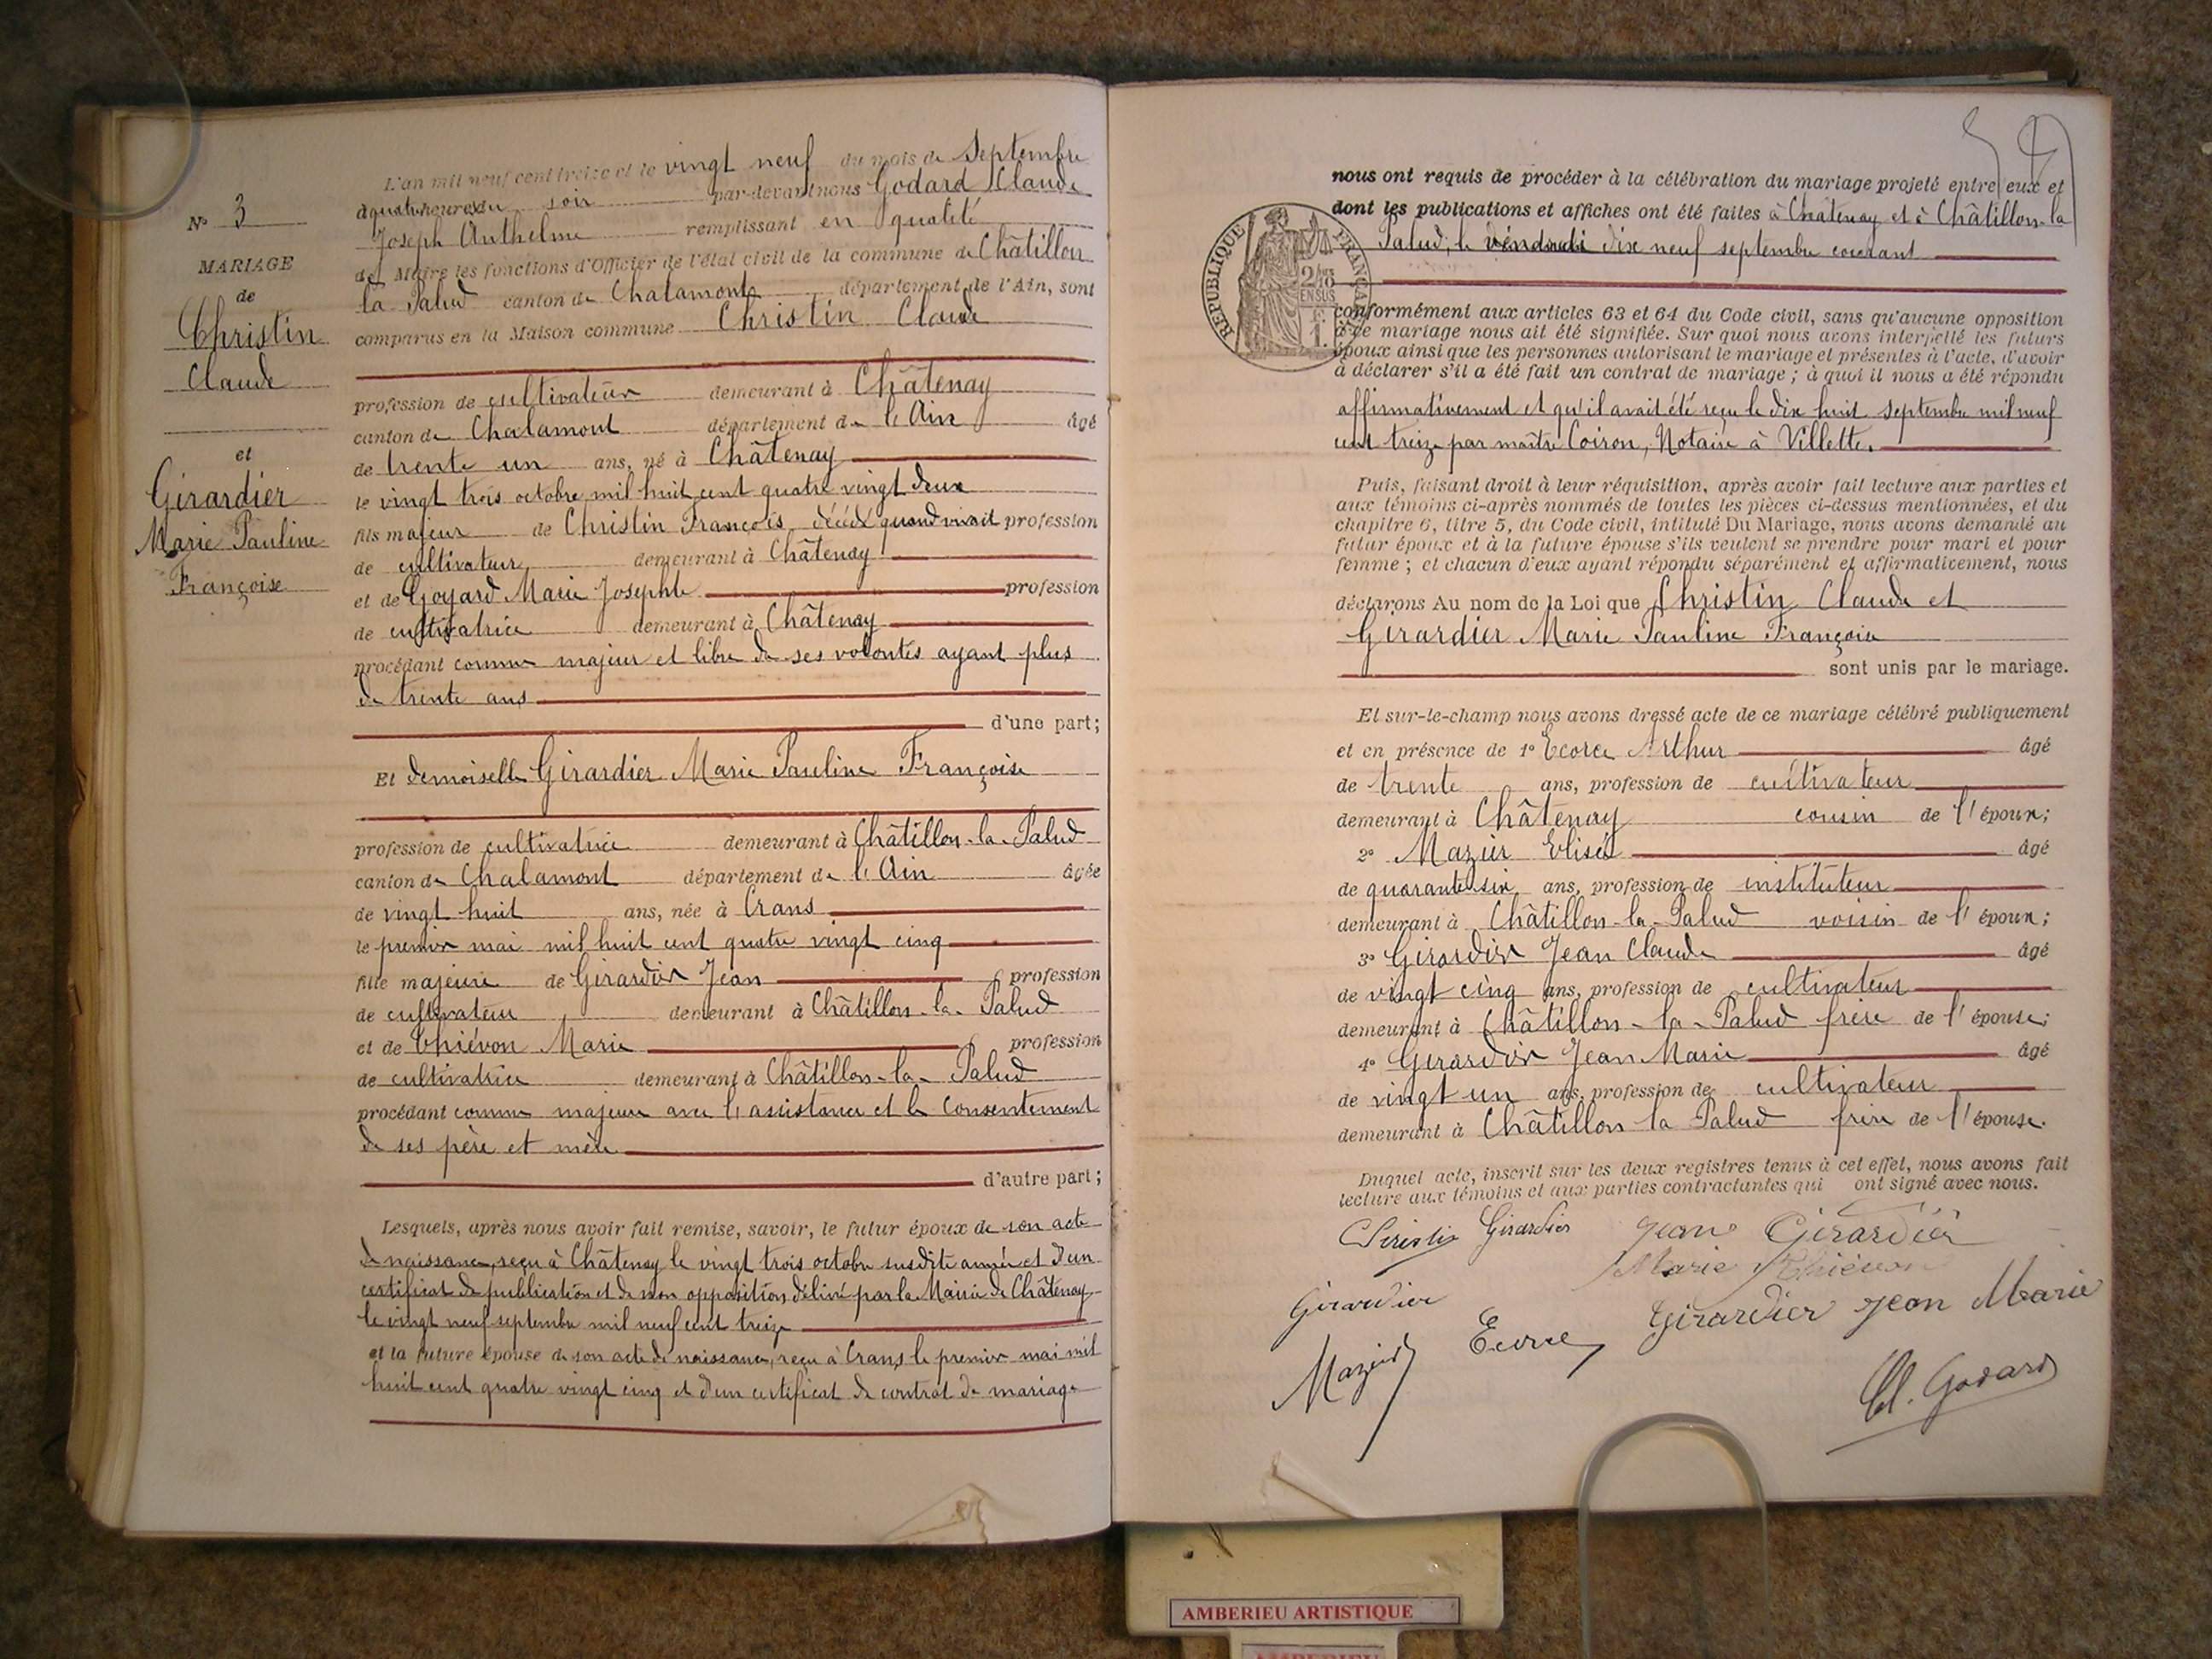 N° 3
MARIAGE
de
Christin
Claude
et
Girardier
Marie Pauline
Françoise
L'an mil neuf cent treize et le vingt neuf du mois de Septembre
à quatre heures du soir par-devant nous Godard Claude
Joseph Anthelme remplissant en qualité
de Maire les fonctions d'Officier de l'état civil de la commune de Châtillon
la Palud canton de Chalamont département de l'Ain, sont
comparus en la Maison commune Christin Claude
profession de cultivateur demeurant à Châtenay
canton de Chalamont département de l'Ain âgé
de trente un ans, né à Châtenay
le vingt trois octobre mil huit cent quatre vingt deux
fils majeur de Christin François, décédé quand vivait profession
de cultivateur demeurant à Châtenay
et de Goyard Marie Josephte profession
de cultivatrice demeurant à Châtenay
procédant comme majeur et libre de ses volontés ayant plus
de trente ans
d'une part;
Et demoiselle Girardier Marie Pauline Françoise
profession de cultivatrice demeurant à Châtillon-la-Palud
canton de Chalamont département de l'Ain âgée
de vingt huit ans, née à Crans
le premier mai mil huit cent quatre vingt cinq
fille majeure de Girardier Jean profession
de cultivateur demeurant à Châtillon-la-Palud
et de Thiévon Marie profession
de cultivatrice demeurant à Châtillon-la-Palud
procédant comme majeure avec l'assistance et le consentement
de ses père et mère
d'autre part;
Lesquels, après nous avoir fait remise, savoir, le futur époux de son acte
de naissance, reçu à Châtenay le vingt trois octobre susdite année et d'un
certificat de publication et de non opposition délivré par la Mairie de Châtenay
le vingt neuf septembre mil neuf cent treize
et la future épouse de son acte de naissance, reçu à Crans le premier mai mil
huit cent quatre vingt cinq et d'un certificat de contrat de mariage
nous ont requis de procéder à la célébration du mariage projeté entre eux et
dont les publications et affiches ont été faites à Châtenay et à Châtillon-la
Palud, le vendredi dix neuf septembre courant
REPUBLIQUE FRANÇAISE
2/10
EN SUS
1 F.
conformément aux articles 63 et 64 du Code civil, sans qu'aucune opposition
à ce mariage nous ait été signifiée. Sur quoi nous avons interpellé les futurs
époux ainsi que les personnes autorisant le mariage et présentes à l'acte, d'avoir
à déclarer s'il a été fait un contrat de mariage; à quoi il nous a été répondu
affirmativement et qu'il avait été reçu le dix huit septembre mil neuf
cent treize par maître Coiron, Notaire à Villette.
Puis, faisant droit à leur réquisition, après avoir fait lecture aux parties et
aux témoins ci-après nommés de toutes les pièces ci-dessus mentionnées, et du
chapitre 6, titre 5, du Code civil, intitulé Du Mariage, nous avons demandé au
futur époux et à la future épouse s'ils veulent se prendre pour mari et pour
femme; et chacun d'eux ayant répondu séparément et affirmativement, nous
déclarons Au nom de la Loi que Christin Claude et
Girardier Marie Pauline Françoise
sont unis par le mariage.
Et sur-le-champ nous avons dressé acte de ce mariage célébré publiquement
et en présence de 1° Ecorce Arthur âgé
de trente ans, profession de cultivateur
demeurant à Châtenay cousin de l'époux;
2° Mazuir Elisée âgé
de quarante six ans, profession de instituteur
demeurant à Châtillon-la-Palud voisin de l'époux;
3° Girardier Jean Claude âgé
de vingt cinq ans, profession de cultivateur
demeurant à Châtillon-la-Palud frère de l'épouse;
4° Girardier Jean Marie âgé
de vingt un ans, profession de cultivateur
demeurant à Châtillon la Palud frère de l'épouse.
Duquel acte, inscrit sur les deux registres tenus à cet effet, nous avons fait
lecture aux témoins et aux parties contractantes qui ont signé avec nous.
Christin Girardier Jean Girardier
Marie Thiévon
Girardier
Girardier Jean Marie
Ecorce
Cl. Godard
AMBERIEU ARTISTIQUE
AMBERIEU